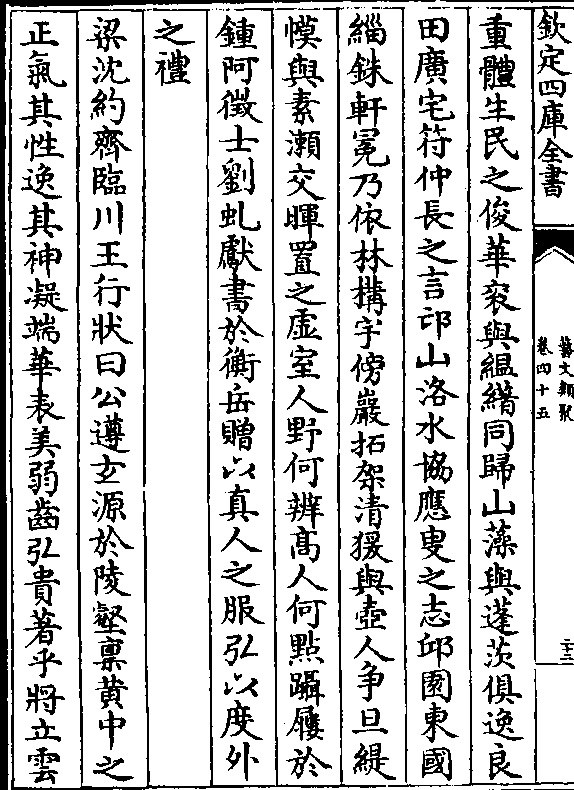 欽定四庫全書
藝文類聚
卷四十五
二十二
重體生民之俊華衮與緼緖同歸山藻與蓬茨俱逸良
田廣宅符仲長之言邙山洛水協應叟之志邱園東國
緇銖軒冕乃依林搆宇傍巖拓架清猨與壺人争旦緹
幙與素瀬交暉置之虚室人野何辨髙人何點躡屨於
鍾阿徵士劉虬獻書於衡岳贈以真人之服弘以度外
之禮
梁沈約齊臨川王行狀曰公遵𤣥源於陵壑禀黄中之
正氣其性逸其神凝端華表美弱齒弘貴著乎將立雲